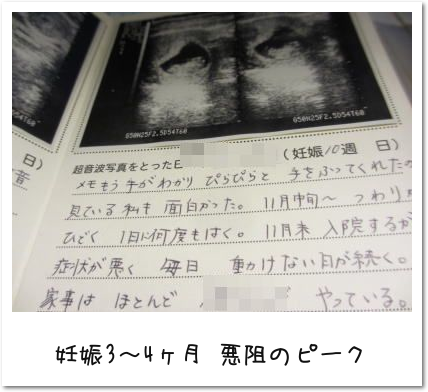 G50N25F2.5D54T60 G50N25F2.5D54T60
日)
音
超音波写真をとった日 (妊娠10週 日)
メモ もう手がわかり ぴらぴらと 手をふってくれたの
見ている私も 面白かった。 11月中旬〜 つわりが
ひどく 1日に何度もはく。 11月末 入院するが
症状が悪く 毎日 動けない日が続く。
家事は ほとんど やっている。
妊娠3〜4ヶ月 悪阻のピーク